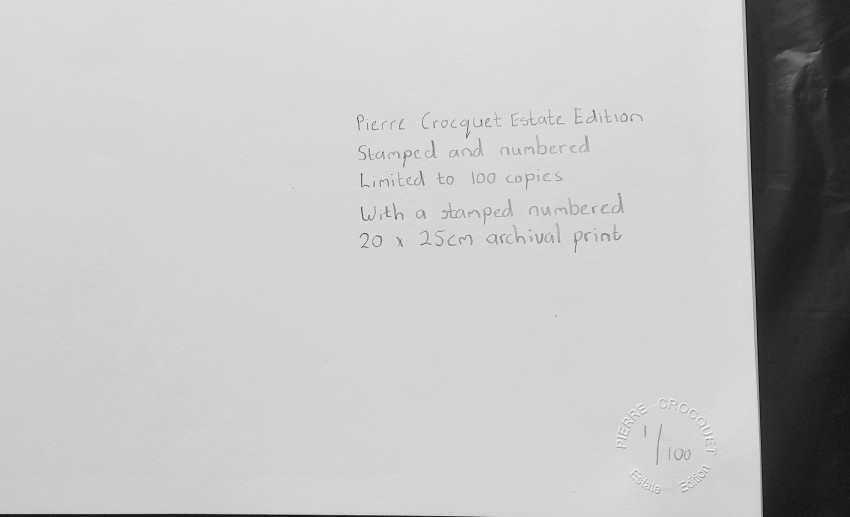 Pierre Crocquet Estate Edition
Stamped and numbered
Limited to 100 copies
With a stamped numbered
20 x 25cm archival print
PIERRE CROCQUET
1/100
Estate Edition